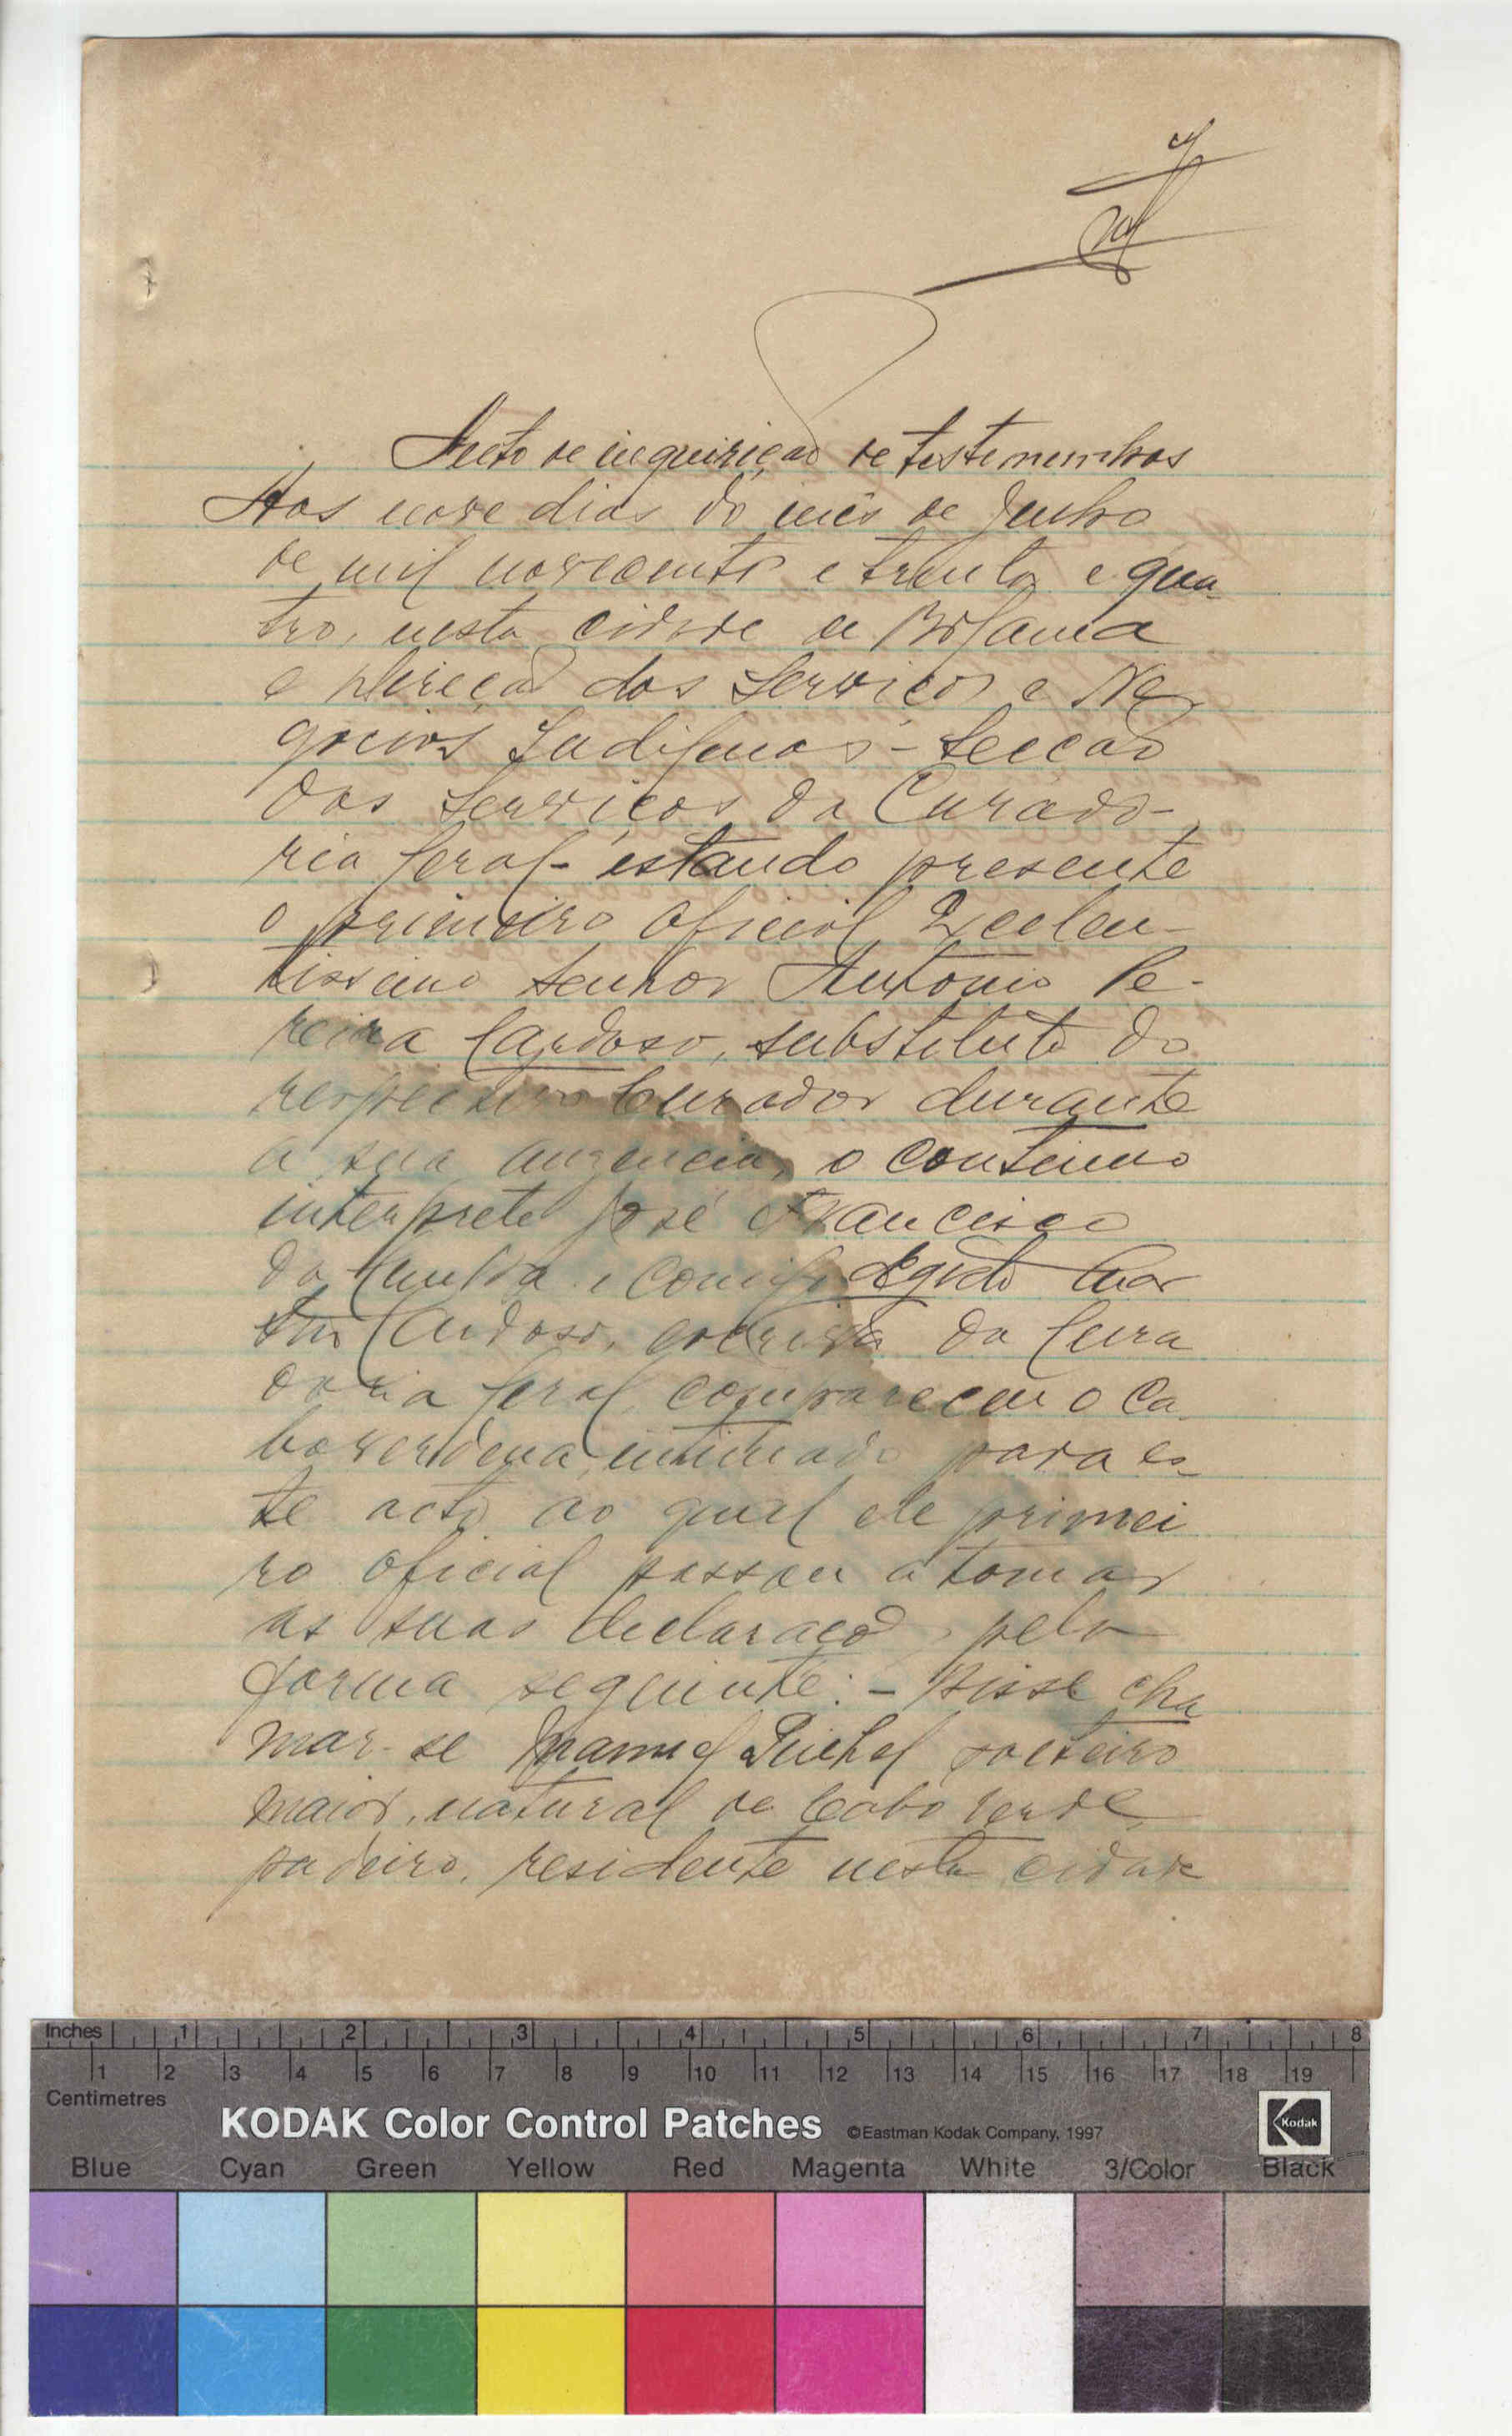 Auto de inquirição de testemunhas
Aos nove dias do mês de Junho
de mil novecentos e trinta e qua-
tro, nesta cidade de Bolama
e Direcção dos Serviços e Ne-
gocios Indigenas - Secção
dos Serviços da Curado-
ria Geral - estando presente
o primeiro oficial Excelen-
tissimo Senhor Antonio Pe-
reira Cardoso, substituto do
respectivo Curador durante
a sua auzencia, o continuo
interprete José Francisco
da Cunha e comigo Egidio Mar
tins Cardoso, escrivão da Cura
doria Geral, compareceu o ca-
boverdeano, intimado para es-
te acto ao qual ele primei
ro oficial passou a tomar
as suas declarações, pela
forma seguinte: - Disse cha
mar-se Manuel solteiro
maior, natural de Cabo Verde,
padeiro, residente nesta cidade
Inches 1 2 3 4 5 6 7 8
1 2 3 4 5 6 7 8 9 10 11 12 13 14 15 16 17 18 19
Centimetres
KODAK Color Control Patches ©Eastman Kodak Company, 1997
Kodak
Blue Cyan Green Yellow Red Magenta White 3/Color Black